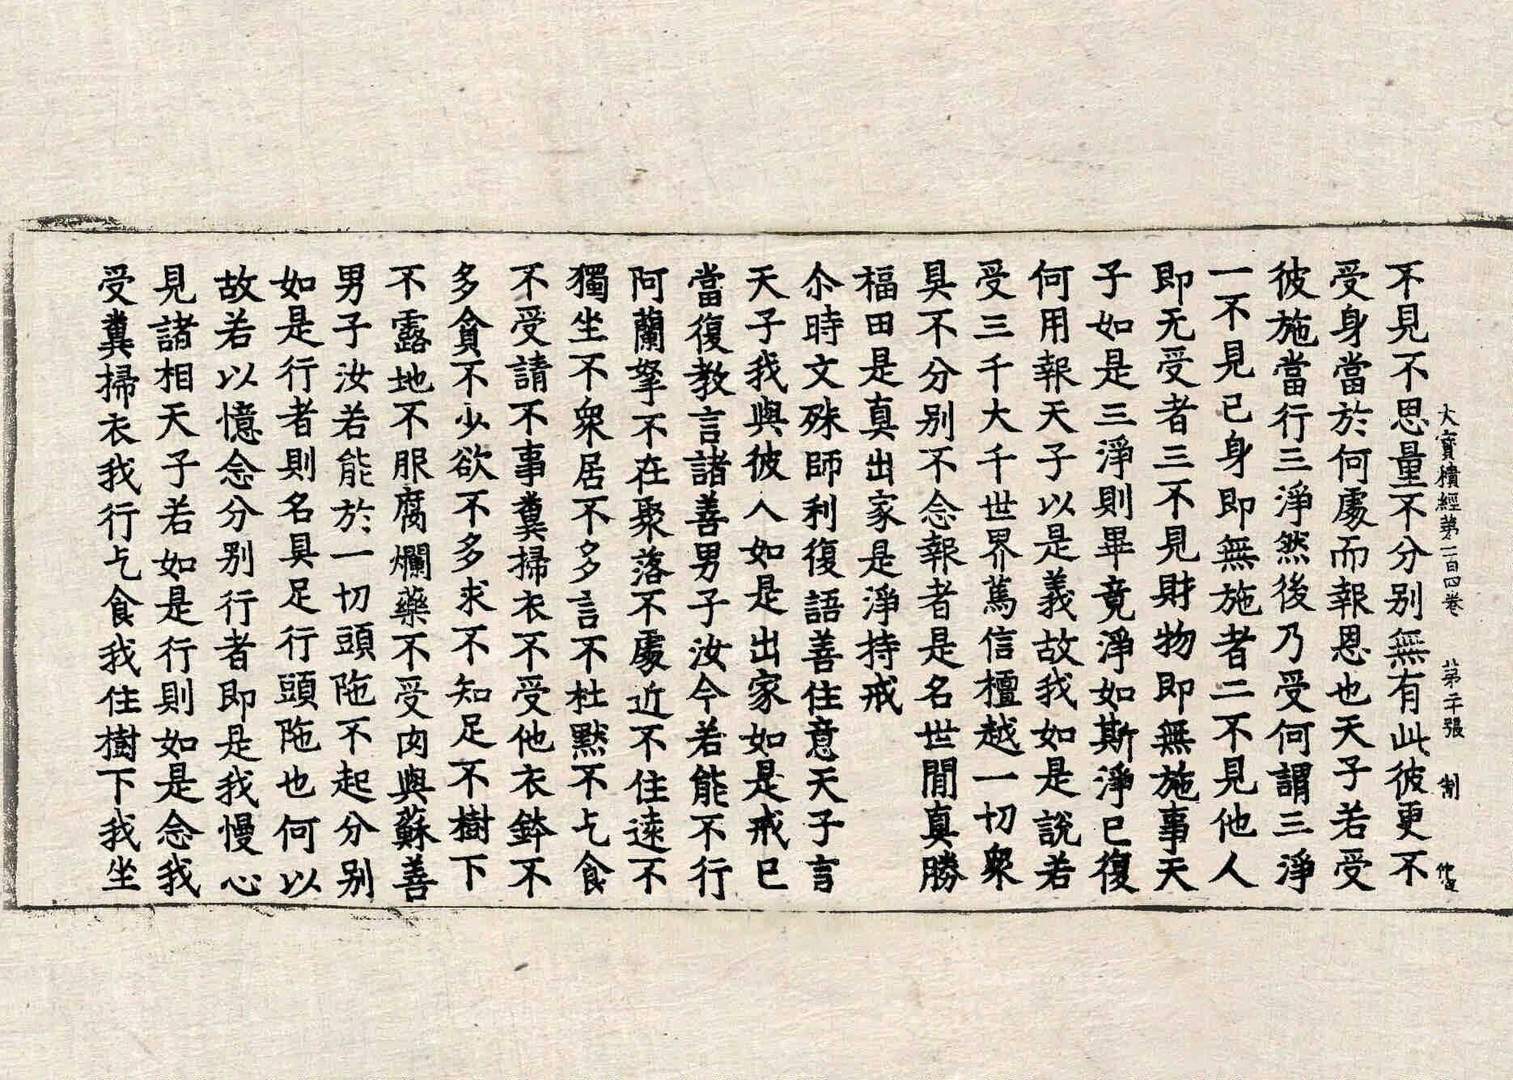 大寶積經第一百四卷 第二十張 制
不見不思量不分別無有此彼更不
受身當於何處而報恩也天子若受
彼施當行三淨然後乃受何謂三淨
一不見已身即無施者二不見他人
即无受者三不見財物即無施事天
子如是三淨則畢竟淨如斯淨已復
何用報天子以是義故我如是說若
受三千大千世界篤信檀越一切衆
具不分別不念報者是名世間真勝
福田是真出家是淨持戒
尒時文殊師利復語善住意天子言
天子我與彼人如是出家如是戒已
當復教言諸善男子汝今若能不行
阿蘭拏不在聚落不處近不住遠不
獨坐不衆居不多言不杜默不乞食
不受請不事糞掃衣不受他衣鉢不
多貪不少欲不多求不知足不樹下
不露地不服腐爛藥不受肉與蘇善
男子汝若能於一切頭陁不起分別
如是行者則名具足行頭陁也何以
故若以憶念分別行者即是我慢心
見諸相天子若如是行則如是念我
受糞掃衣我行乞食我住樹下我坐